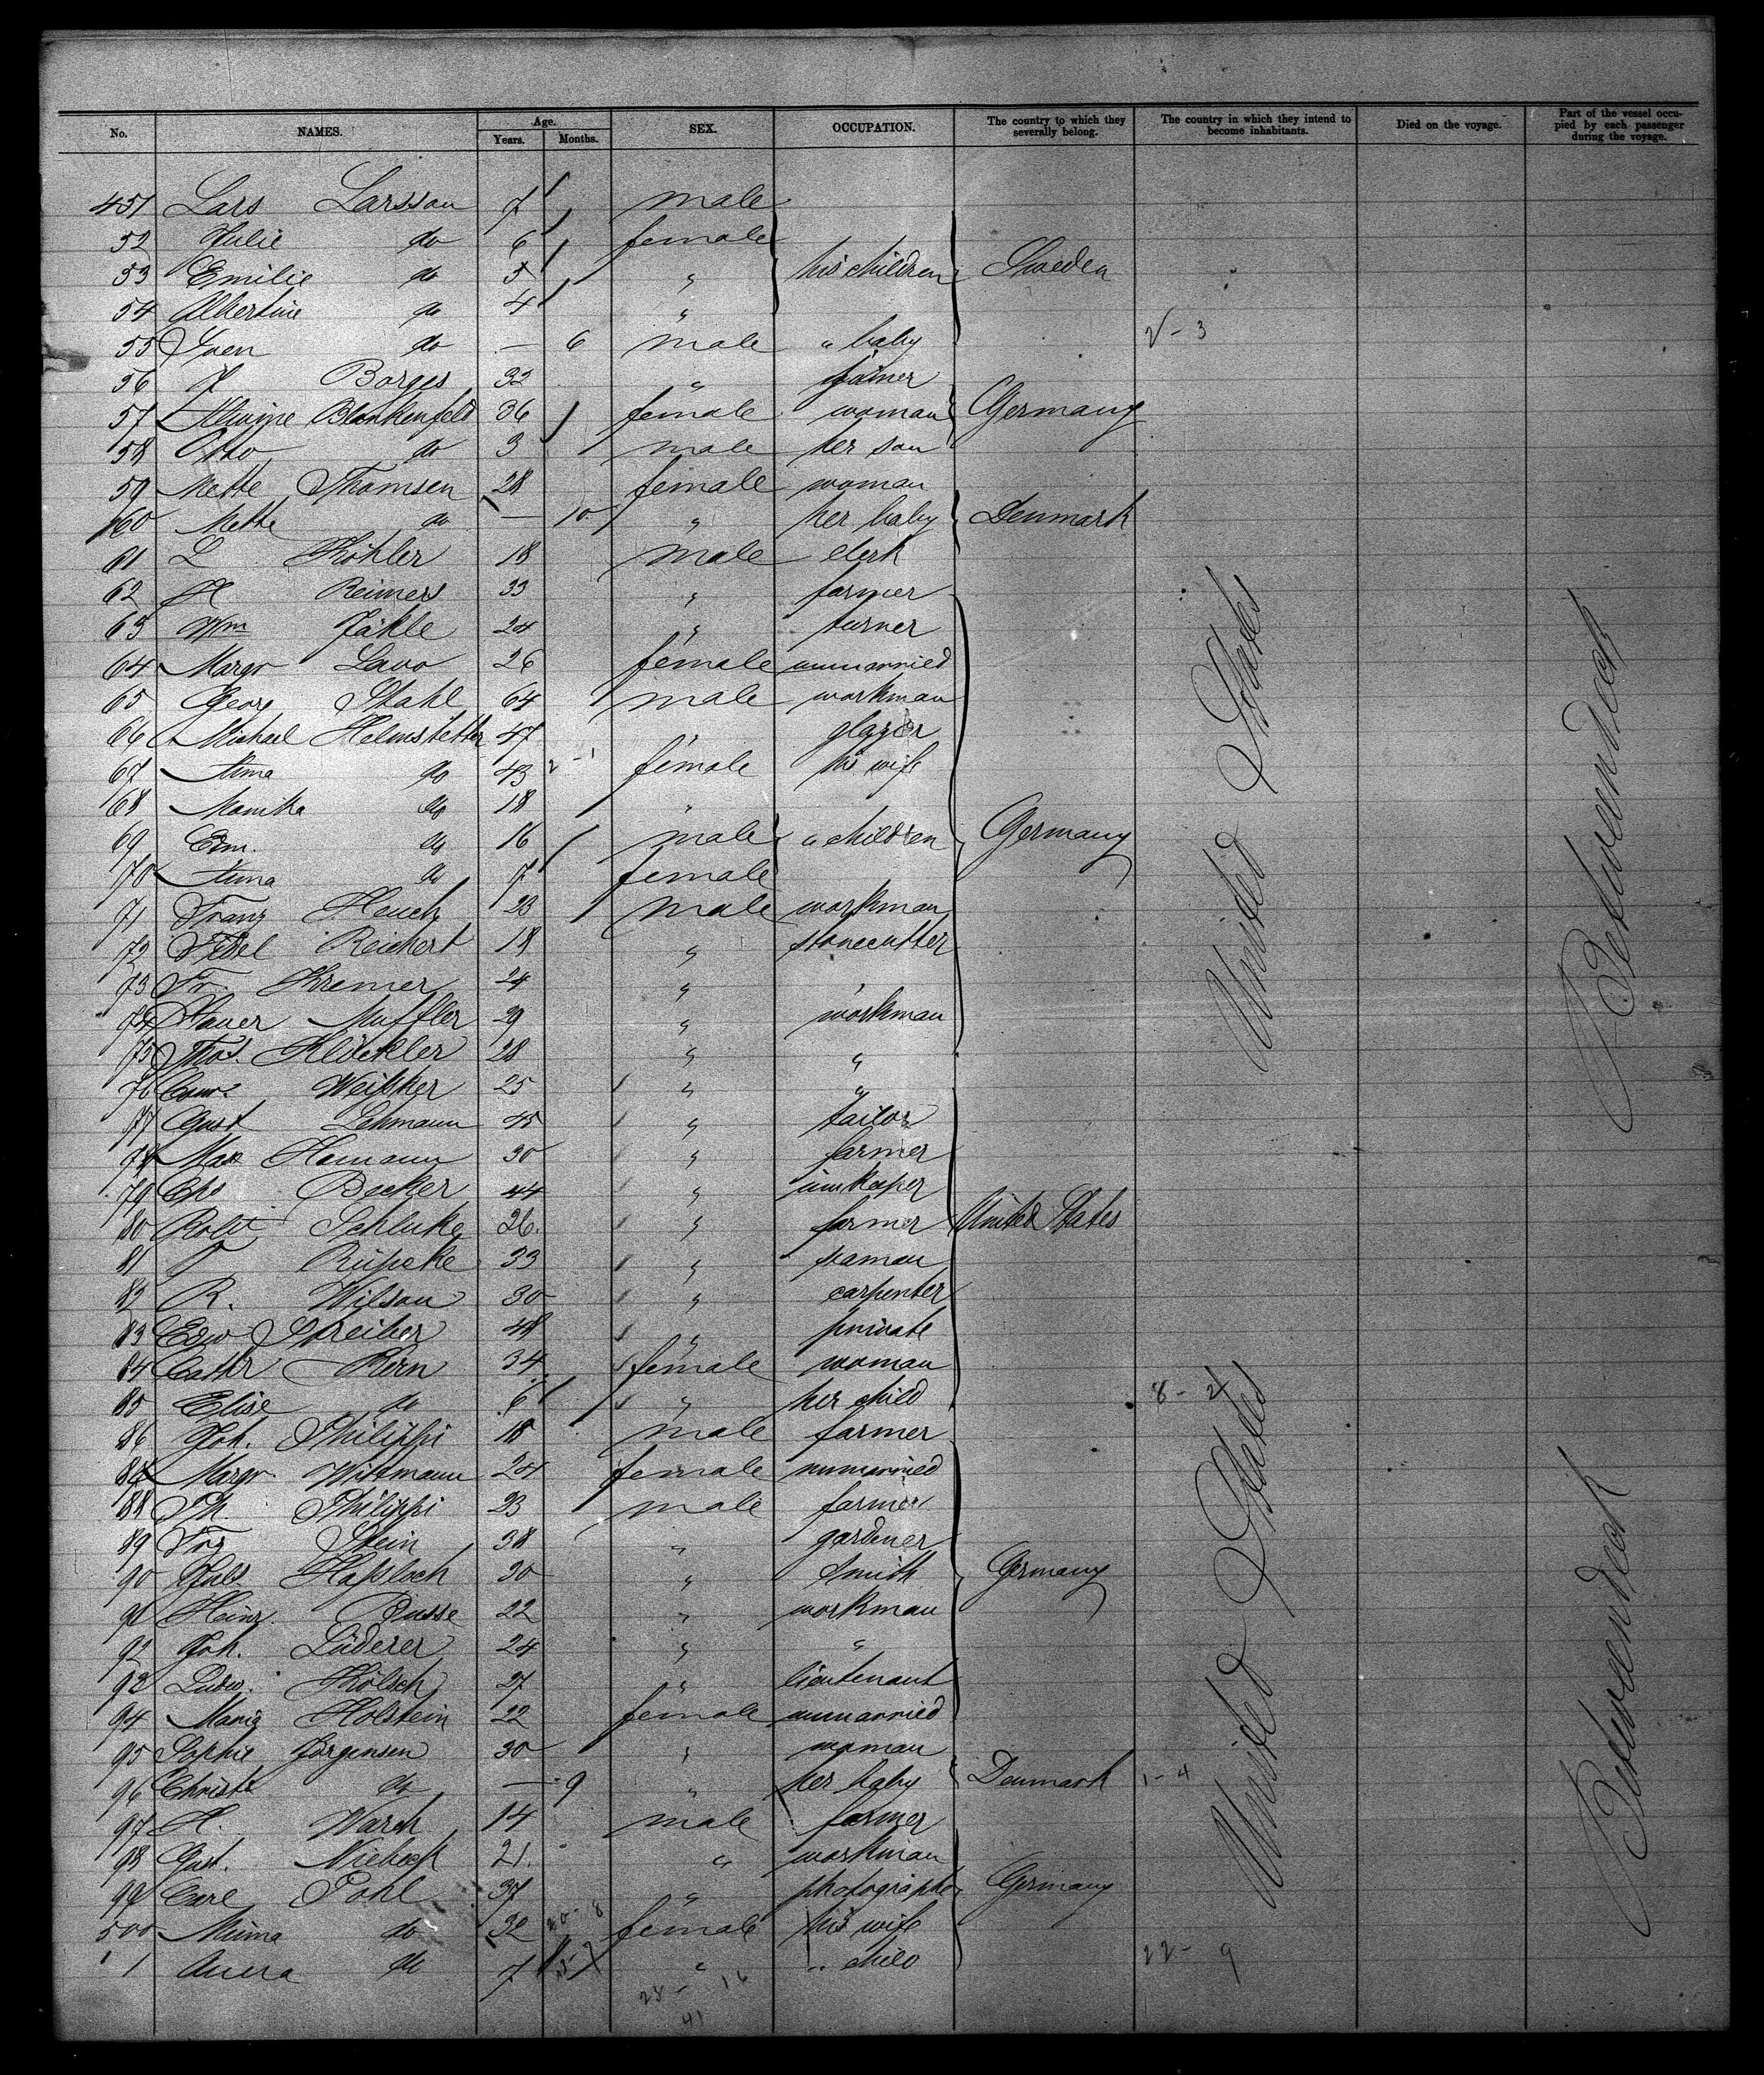 No. NAMES. Age. Years. Months. SEX. OCCUPATION. The country to which they severally belong. The country in which they intend to become inhabitants. Died on the voyage. Part of the vessel occupied by each passenger during the voyage.
451 Lars Larsson 7 male
52 Julie do 6 female
53 Emilie do 5 " his children Sweden
54 Albertine do 4 "
55 Sven do — 6 male " baby 2 - 3
56 J Borges 32 " farmer
57 Alwine Blankenfeld 36 female woman Germany
58 Otto do 3 male her son
59 Mette Thomsen 28 female woman
60 Mette do — 10 " her baby Denmark
61 L Köhler 18 male clerk
62 H Reimers 33 " farmer
63 Wm Jäkle 24 " turner
64 Margr Lavo 26 female unmarried
65 Georg Stahl 64 male workman
66 Michael Helmstetter 47 " glazier
67 Anna do 43 2 - 1 female his wife
68 Monika do 18 "
69 Em. do 16 male " children Germany
70 Anna do 7 female
71 Franz Heuch 23 male workman
72 Fidel Reichert 18 " stonecutter
73 Fr. Kremer 24 " "
74 Xaver Muffler 29 " workman
75 Thos. Klöckler 28 " "
76 Weißker 25 " "
77 Gust Lehmann 45 " tailor
78 Max Homann 30 " farmer
79 Chs Becker 44 " innkeper
80 Robt Schluke 26. " farmer United States
81 Rüpcke 33 " seaman
82 R. Wilson 30 " carpenter
83 Edw Streiber 48 " private
84 Cathr Kern 34 female woman
85 Elise do 6 " her child 8 - 4
86 Joh. Philippi 18 male farmer
87 Margr. Wittmann 24 female unmarried
88 Ph. Philippi 23 male farmer
89 Frz Stein 38 " gardener
90 Juls Haßloch 30 " smith Germany
91 Heinr. Busse 22 " workman
92 Joh. Lüderer 24 " "
93 Ludw. Kölsch 27 " lieutenant
94 Maria Holstein 22 female unmarried
95 Sophie Jörgensen 30 " woman
96 Christe do — 9 " her baby Denmark 1 - 4
97 H. Warch 14 male farmer
98 Gust. Niebock 21. " workman
99 Carl Pohl 37 " photographer Germany
500 Minna do 32 20 - 8 female his wife
1 Anna do 7 " " child 22 - 9
28 - 16
41
United States
United States
Betweendeck
Betweendeck